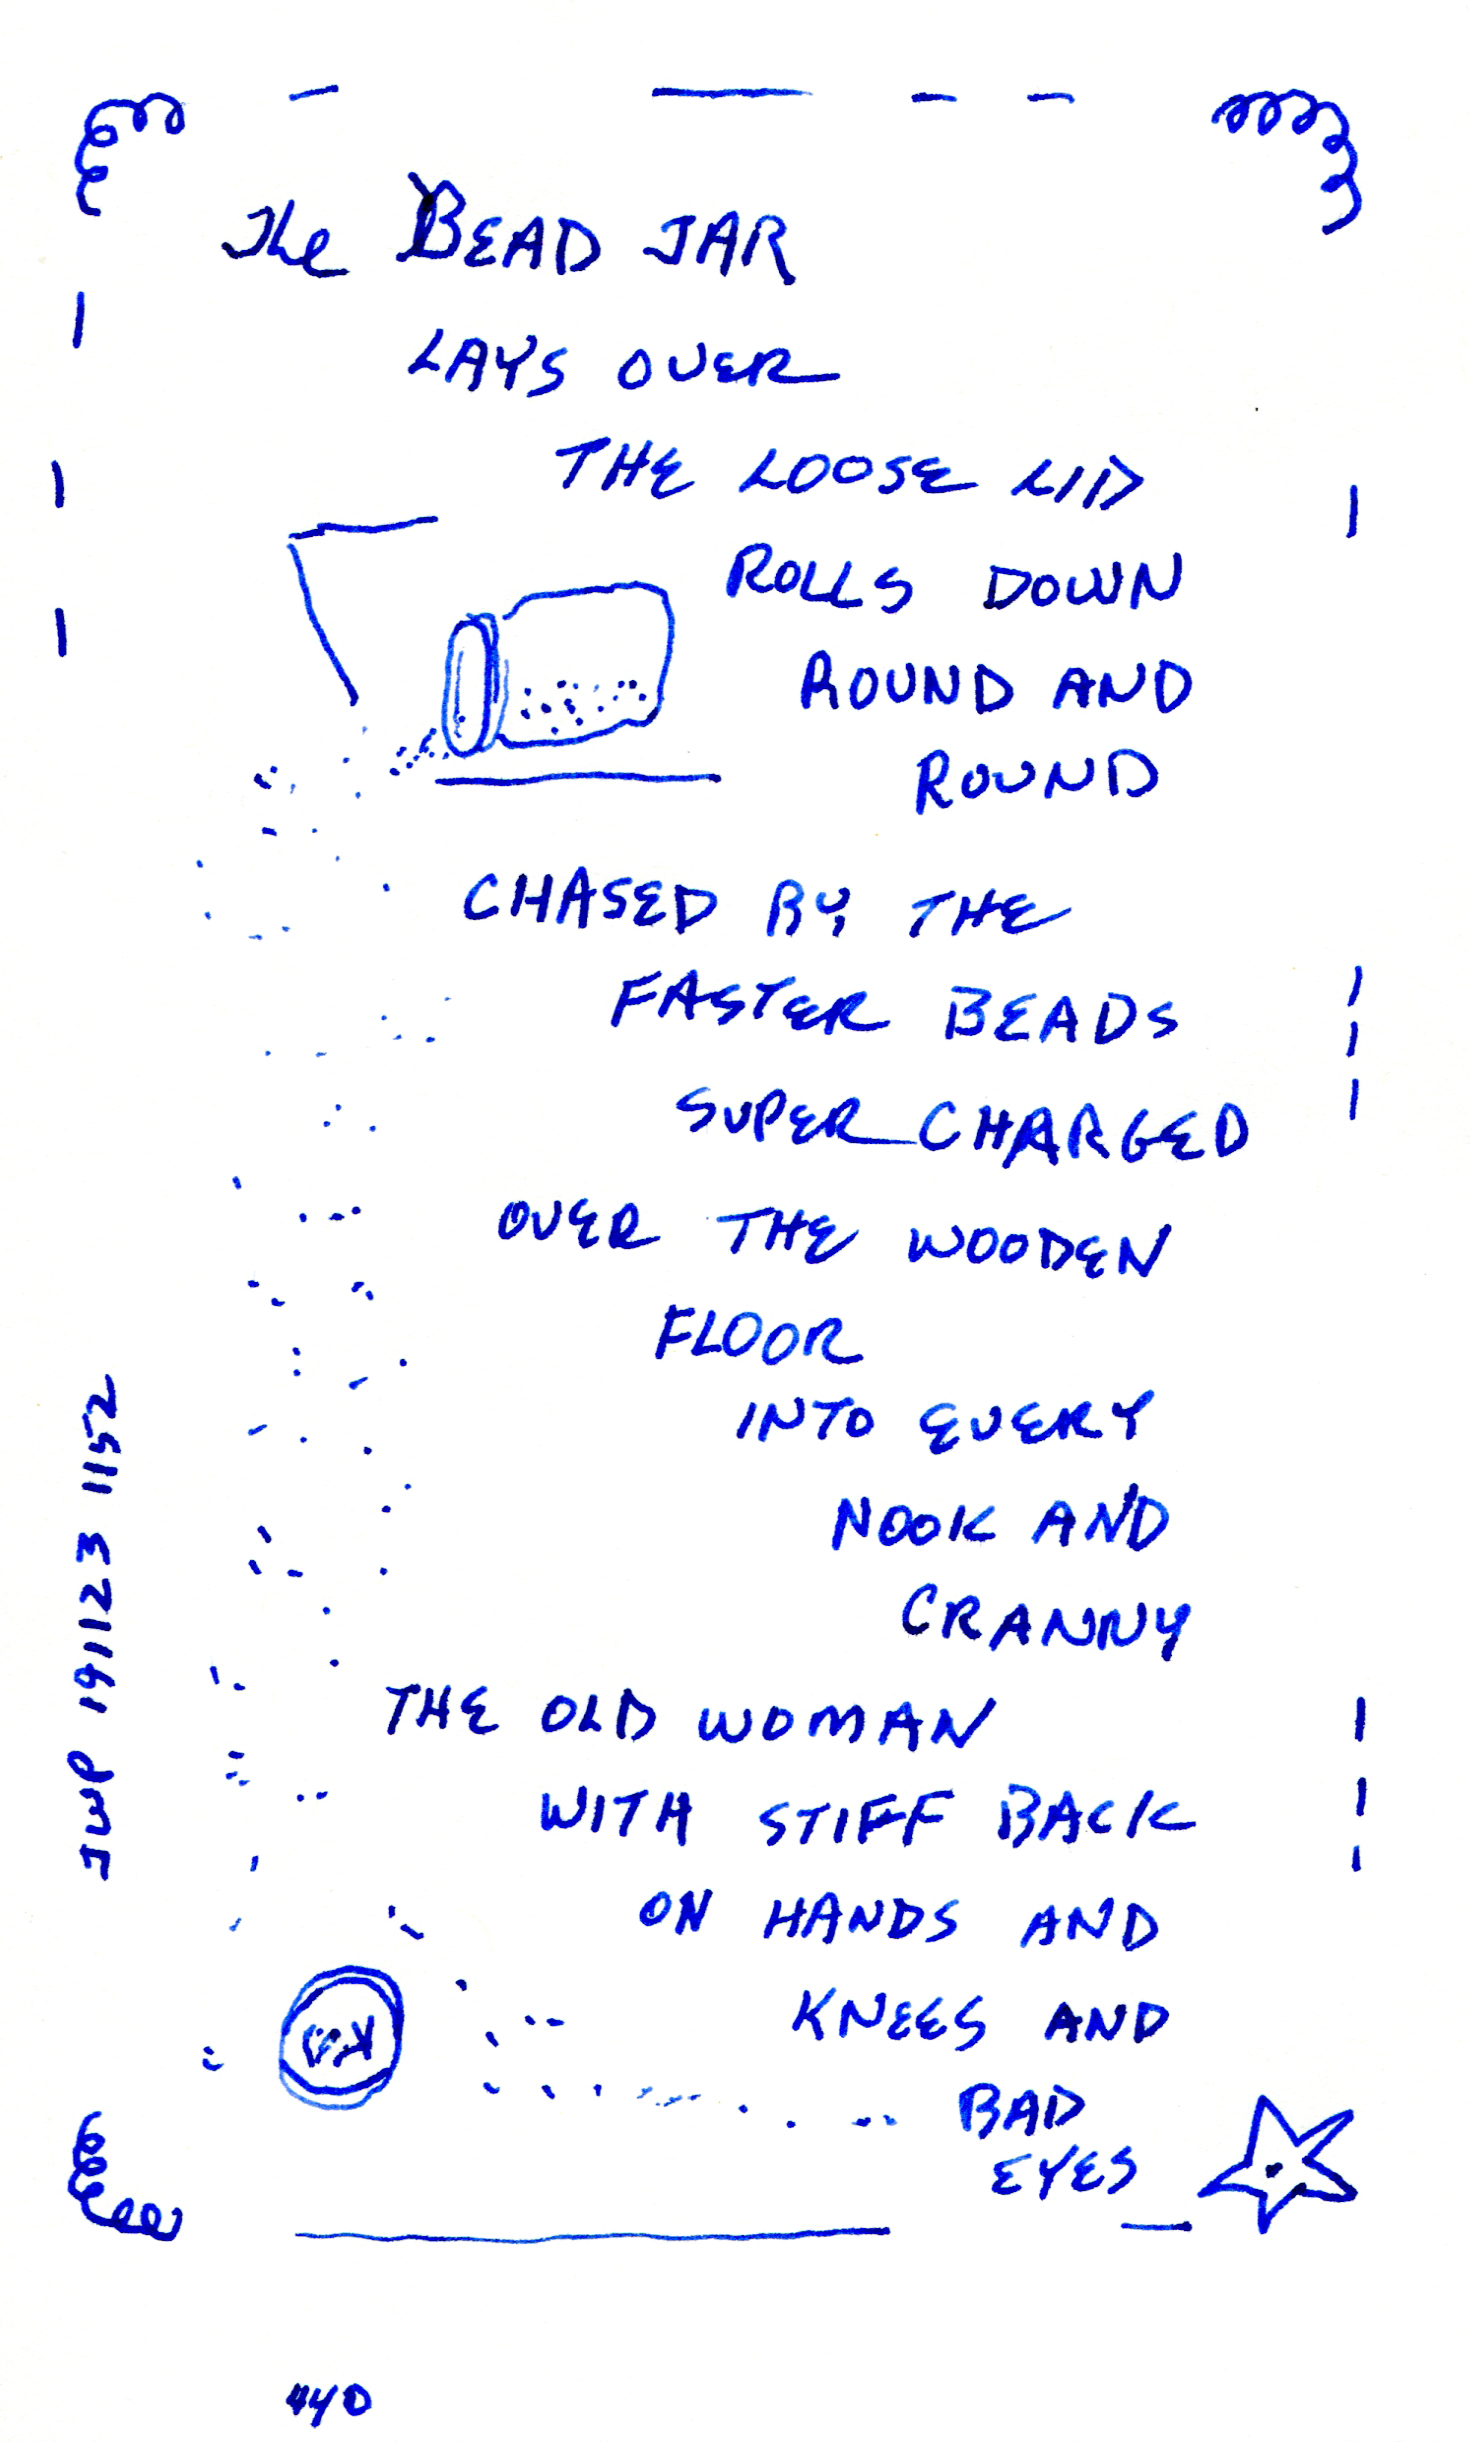 The BEAD JAR
LAYS OVER
THE LOOSE LID
ROLLS DOWN
ROUND AND
ROUND
CHASED BY THE
FASTER BEADS
SUPER CHARGED
OVER THE WOODEN
FLOOR
INTO EVERY
NOOK AND
CRANNY
THE OLD WOMAN
WITH STIFF BACK
ON HANDS AND
KNEES AND
BAD
EYES
JWP 191123 1152
440